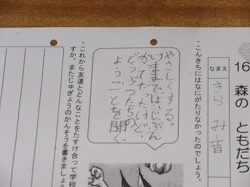 16 森の ともだち
なまえ
きら み音
・こんきちはなにがたりなかったのでしょう。
やさしくする。
いままでは、じぶん
かってだったけど、
どうぶつたちの
ようことを聞く。
これから友達とどんなことをたすけ合って学校
すか。またじゅぎょうのかんそうを書きましょ